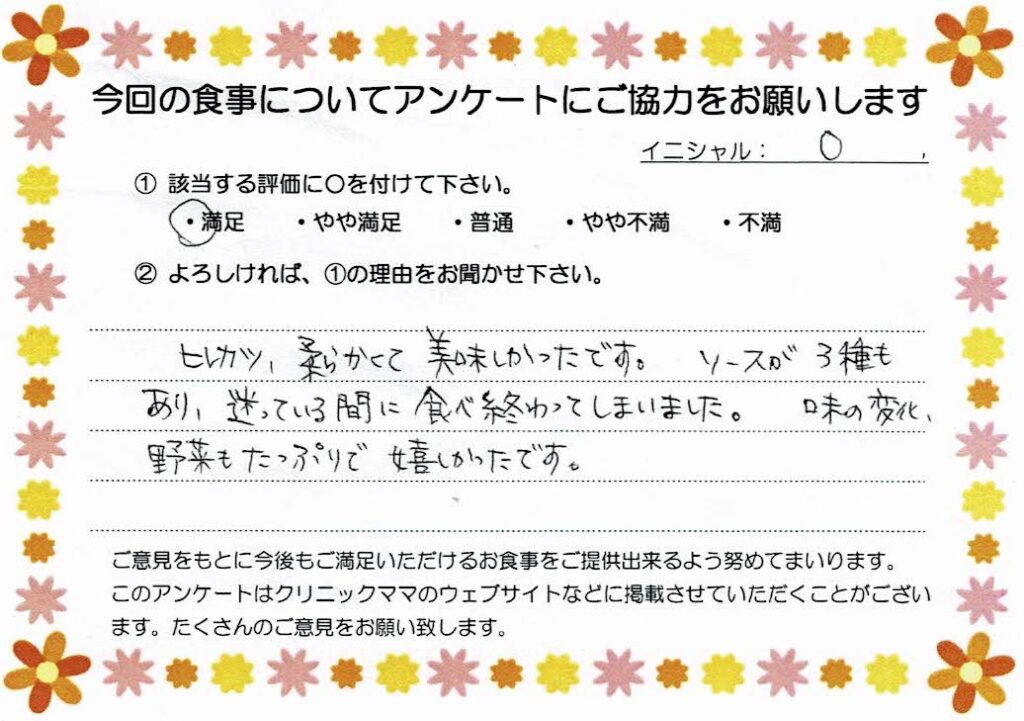 今回の食事についてアンケートにご協力をお願いします
イニシャル： O
① 該当する評価に〇を付けて下さい。
・満足 ・やや満足 ・普通 ・やや不満 ・不満
② よろしければ、①の理由をお聞かせ下さい。
ヒレカツ、柔らかくて 美味しかったです。 ソースが 3種も
あり、迷っている間に 食べ終わってしまいました。 味の変化、
野菜もたっぷりで 嬉しかったです。
ご意見をもとに今後もご満足いただけるお食事をご提供出来るよう努めてまいります。
このアンケートはクリニックママのウェブサイトなどに掲載させていただくことがござい
ます。たくさんのご意見をお願い致します。